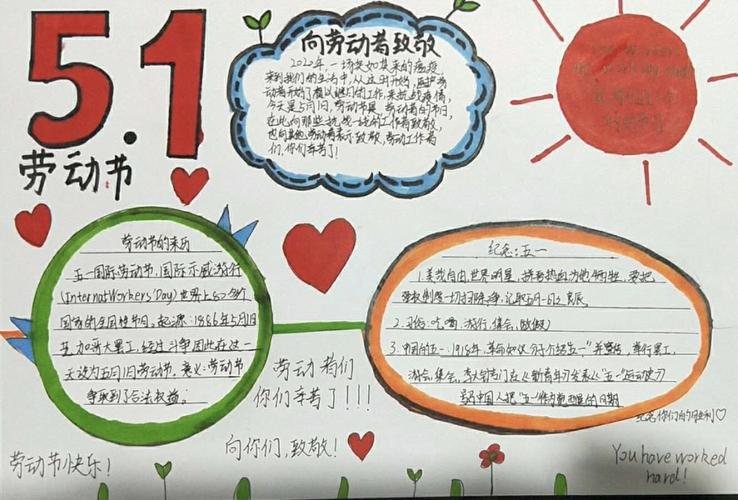 5.1
劳动节
向劳动者致敬
2020年,一场突如其来的瘟疫
来到我们的生活中,从这时开始,医护劳
动者开始了难以想象的工作,来抗战疫情,
今天是5月1日,劳动节是劳动者的节日,
在此向那些抗战一线的工作者致敬,
也向其他劳动者表示致敬,劳动工作者
们,你们辛苦了!
劳动节的来历
五一国际劳动节,国际示威游行
(InternatWorkers'Day)世界上80多个
国家的全国性节日。起源:1886年5月1日
芝加哥大罢工,经过斗争因此在这一
天设为五月1日劳动节。意义:劳动节
争取到了合法权益。
纪念:五一
1.美我自由,世界明星,拼吾热血为他牺牲,要把
强权制度一切扫除净,记取五月一日之良辰。
2.习俗:吃喝,游行,集会,(放假)
3.中国的五一,1918年,革命知识分子介绍五一"并宣传,举行罢工,
游会集会,李大钊专门在《新青年》发表《"五一"运动史》
是中国人把"五一"作为觉醒的日期
劳动者们
你们辛苦了!!!
纪念你们的胜利♡
向你们,致敬!
劳动节快乐!
You have worked
hard!